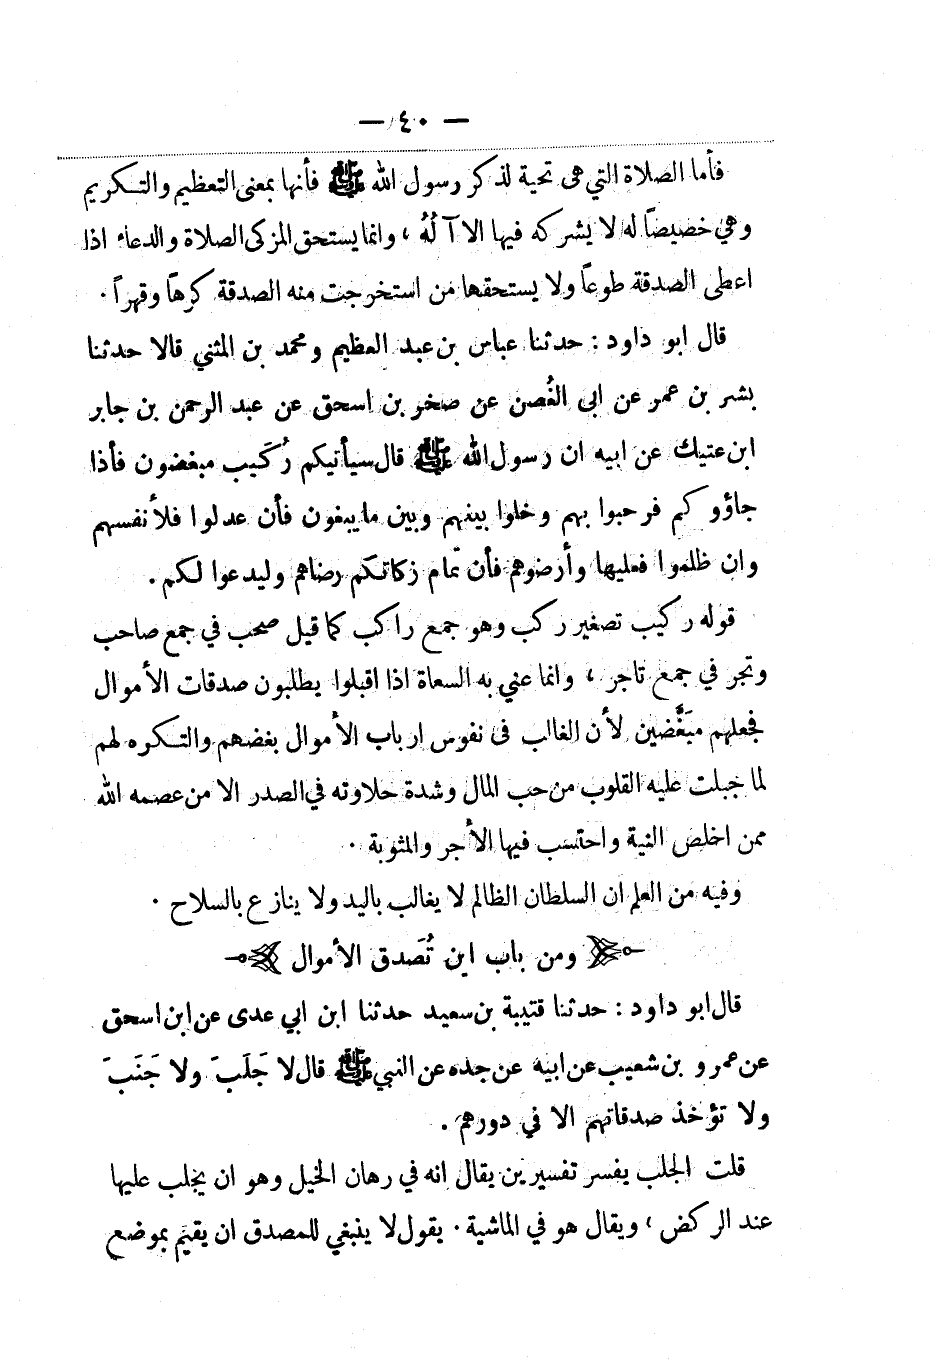 — ٤٠ —
فأما الصلاة التي هى تحية لذكر رسول الله ﷺ فأنها بمعنى التعظيم والتكريم
وهي خصيصاً له لا يشركه فيها الا آ لُهُ ، وانما يستحق المزكى الصلاة والدعاء اذا
اعطى الصدقة طوعاً ولا يستحقها من استخرجت منه الصدقة كرهاً وقهراً .
قال ابو داود : حدثنا عباس بن عبد العظيم ومحمد بن المثني قالا حدثنا
بشر بن عمر عن ابى الغُصن عن صخر بن اسحق عن عبد الرحمن بن جابر
ابن عتيك عن ابيه ان رسول الله ﷺ قال سيأتيكم رُكَيب مبغضون فأذا
جاؤوكم فرحبوا بهم وخلوا بينهم وبين ما يبغون فأن عدلوا فلأنفسهم
وان ظلموا فعليها وأرضوهم فأن تمّام زكاتكم رضاهم وليدعوا لكم .
قوله ركيب تصغير ركب وهو جمع راكب كما قيل صحب في جمع صاحب
وتجر في جمع تاجر ، وانما عني به السعاة اذا اقبلوا يطلبون صدقات الأموال
فجعلهم مبَغَّضين لأن الغالب فى نفوس ارباب الأموال بغضهم والتكره لهم
لما جبلت عليه القلوب من حب المال وشدة حلاوته في الصدر الا من عصمه الله
ممن اخلص النية واحتسب فيها الأجر والمثوبة .
وفيه من العلم ان السلطان الظالم لا يغالب باليد ولا ينازع بالسلاح .
ومن باب اين تُصَدق الأموال
قال ابو داود : حدثنا قتيبة بن سعيد حدثنا ابن ابي عدى عن ابن اسحق
عن عمرو بن شعيب عن ابيه عن جده عن النبي ﷺ قال لا جَلَبَ ولا جَنَبَ
ولا تؤخذ صدقاتهم الا في دورهم .
قلت الجلب يفسر تفسيرين يقال انه في رهان الخيل وهو ان يجلب عليها
عند الركض ، ويقال هو في الماشية . يقول لا ينبغي للمصدق ان يقيم بموضع